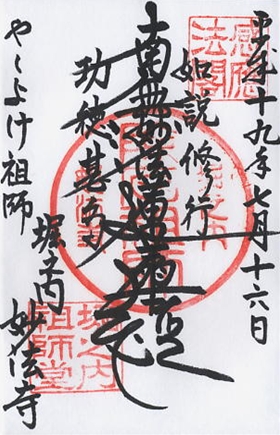 平成十九年七月十六日
感應
法閣
如説修行
南無妙法蓮華経
功徳甚多
やくよけ祖師
堀之内
妙法寺
堀之内
祖師堂